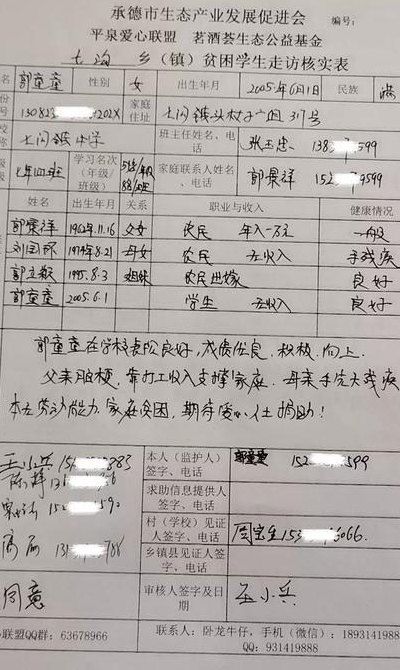 承德市生态产业发展促进会 编号:
平泉爱心联盟 茗酒荟生态公益基金
七沟 乡（镇）贫困学生走访核实表
名 郭童童 性别 女 出生年月 2005年6月1日 民族 满
份 号 13082 202X 家庭住址 七沟镇
七沟镇中学 班主任姓名、电话 138 599
级 学习名次（年级/班级） 家庭联系人姓名、电话 郭景祥 152 9599
姓名 出生年月 关系 职业与收入 健康情况
郭景祥 1962.11.16 父女 农民 年入一万元 一般
1974.8.21 母女 农民 无收入 手残疾
1995.8.3 姐妹 农民出嫁 良好
郭童童 2005.6.1 学生 无收入 良好
郭童童在学校表现良好,成绩优良,积极、向上。
父亲脑梗,靠打工收入支撑家庭。母亲手先天残疾
本无劳动能力,家庭贫困,期待爱心人士捐助!
王小兵
本人（监护人）签字、电话 郭童童 152 599
求助信息提供人签字、电话
村（学校）见证人签字、电话 153 6066
乡镇县见证人签字、电话
同意 审核人签字及日期 王小兵
联盟QQ群: 63678966 联系人: 卧龙牛仔, 手机（微信）: 1893141988
QQ: 931419888